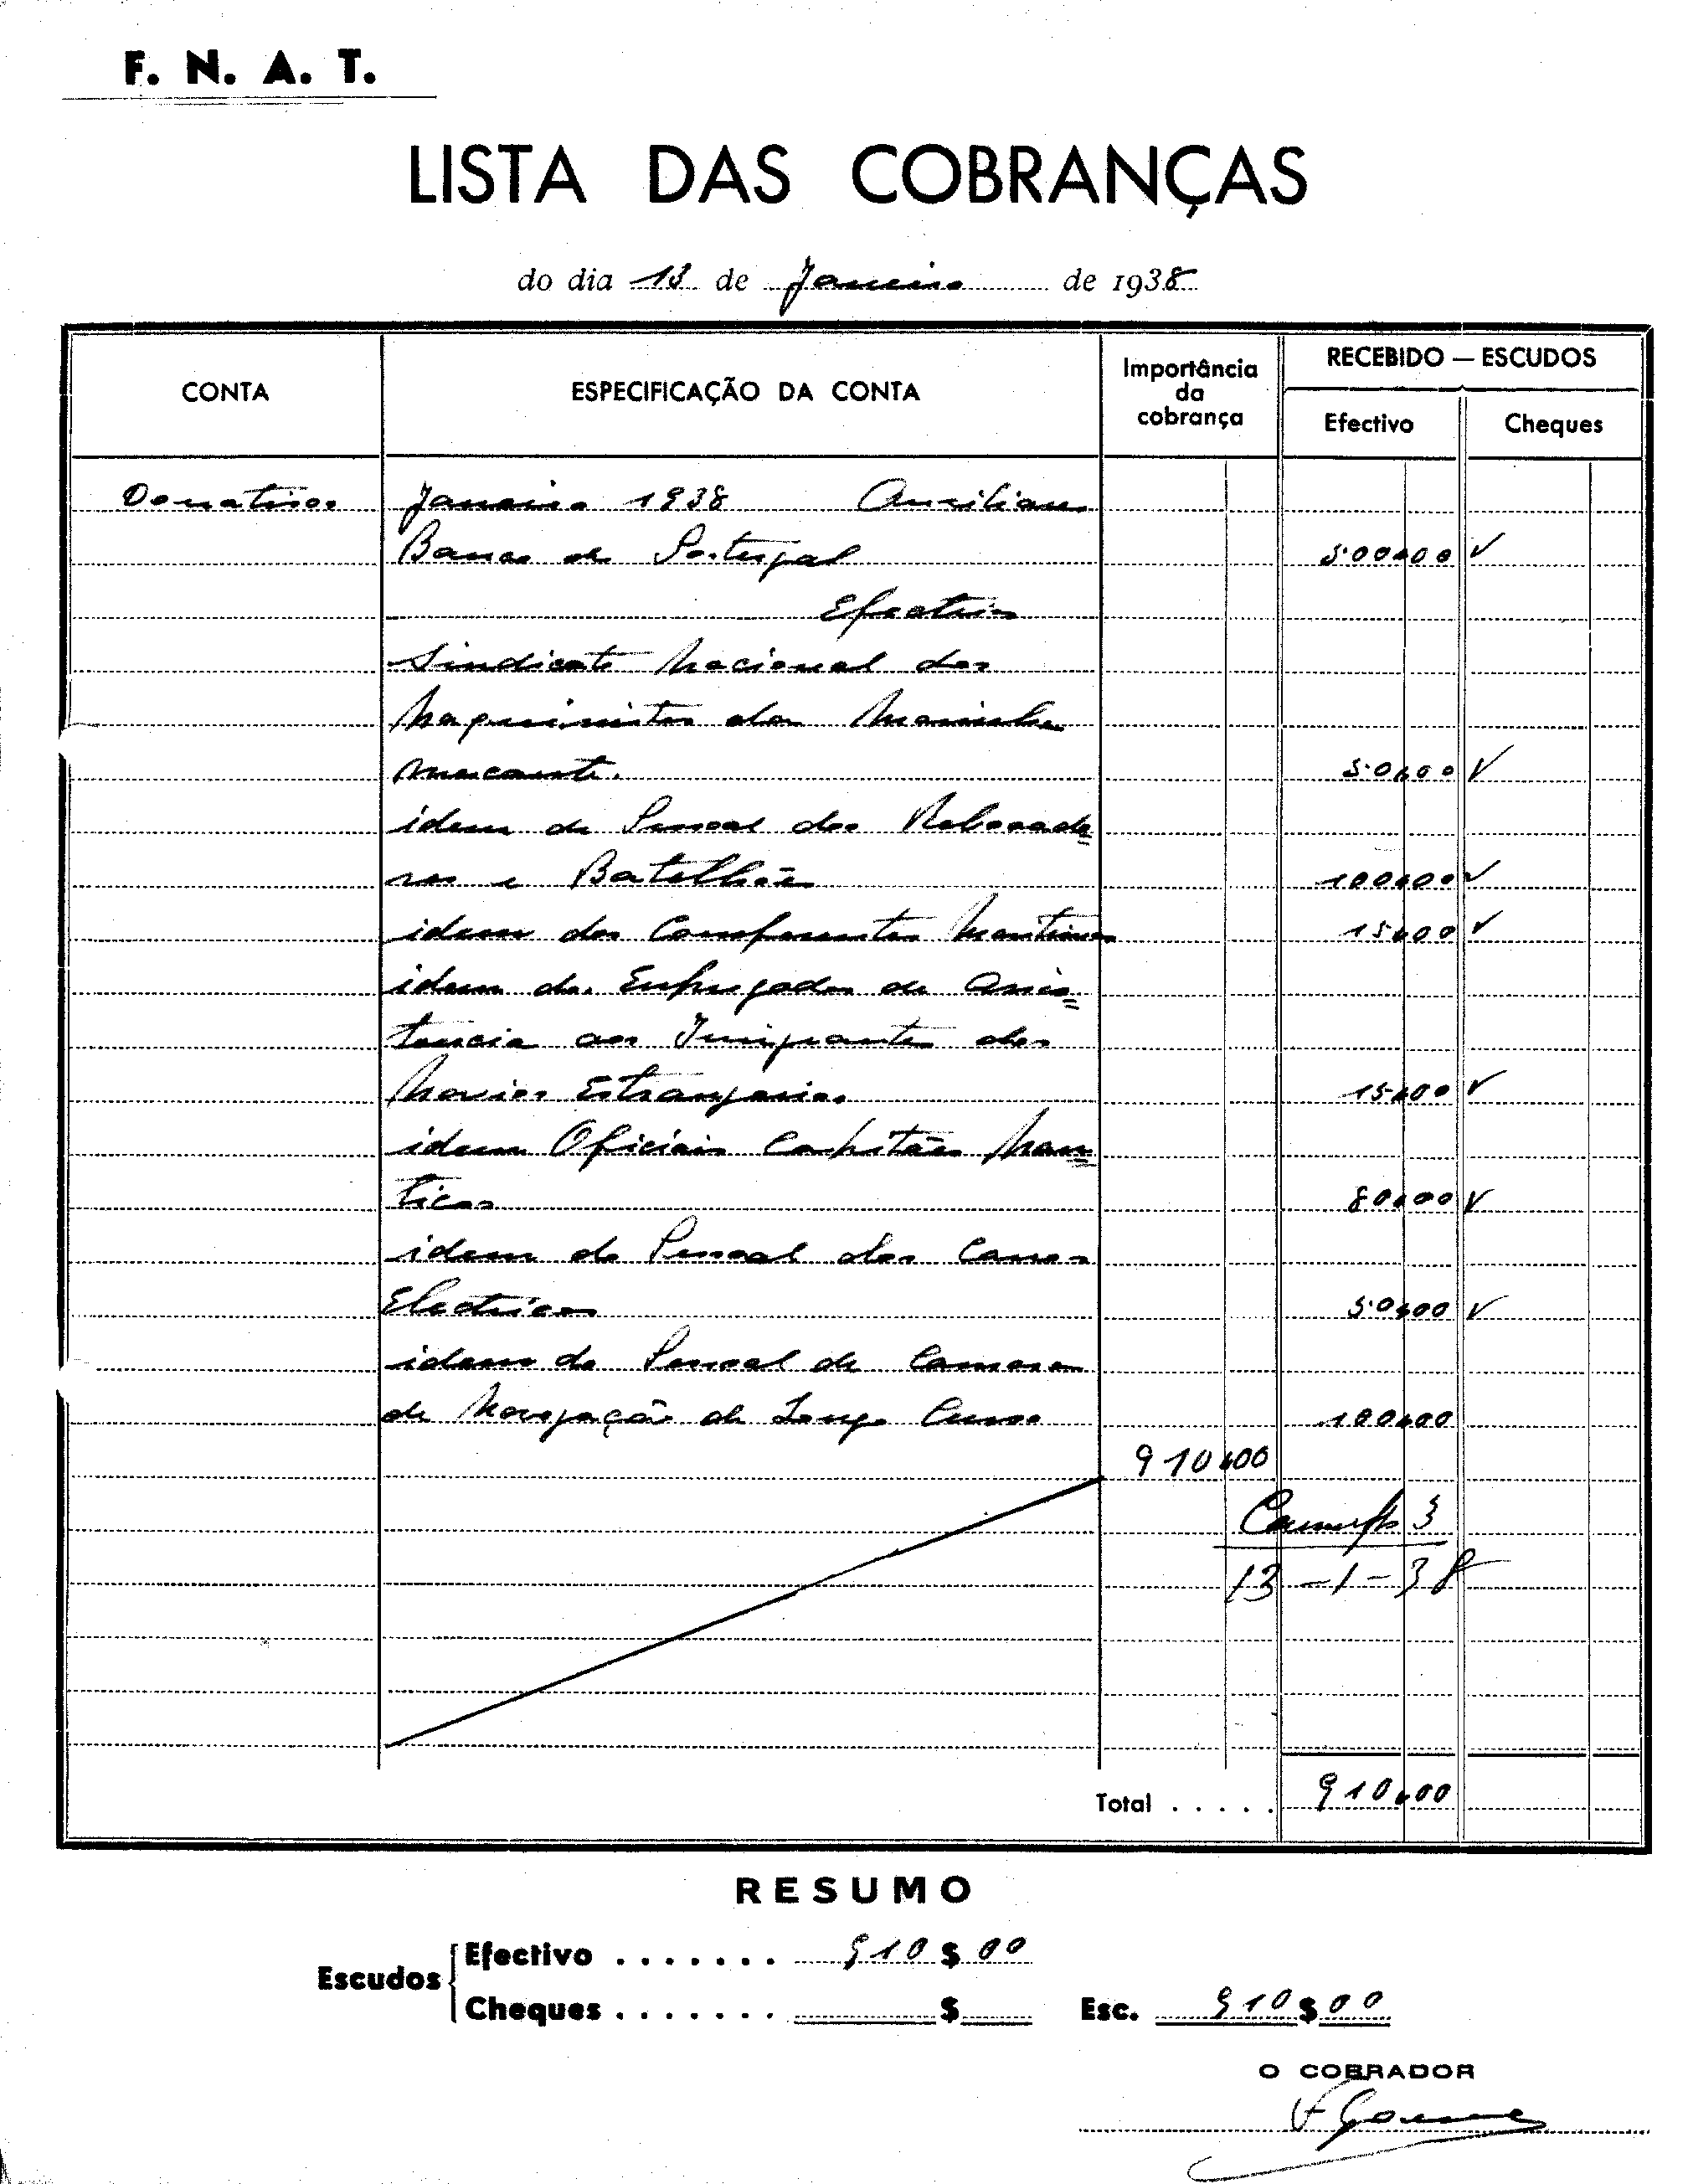 F. N. A. T.
LISTA DAS COBRANÇAS
do dia 13 de Janeiro de 1938
CONTA
ESPECIFICAÇÃO DA CONTA
Importância da cobrança
RECEBIDO — ESCUDOS
Efectivo
Cheques
Donativos Janeiro 1938 Auxiliares
Banco de Portugal 500$00 ✓
Efectivos
Sindicato Nacional dos
Maquinistas da Marinha
Mercante. 50$00 ✓
idem do Pessoal dos Rebocado=
res e Batelhões 100$00 ✓
idem dos Maritimos 15$00 ✓
idem dos Empregados de Assis=
tencia aos Imigrantes dos
Navios Estrangeiros 15$00 ✓
idem Oficiais Capitães Nau=
ticos 80$00 ✓
idem do Pessoal dos Carros
Electricos 50$00 ✓
idem do Pessoal de Camara
de Navegação de Longo Curso 100$00
910$00
3
13-1-38
Total ..... 910$00
RESUMO
Escudos
Efectivo ....... 910$00
Cheques ....... $
Esc. 910$00
O COBRADOR
F Gomes